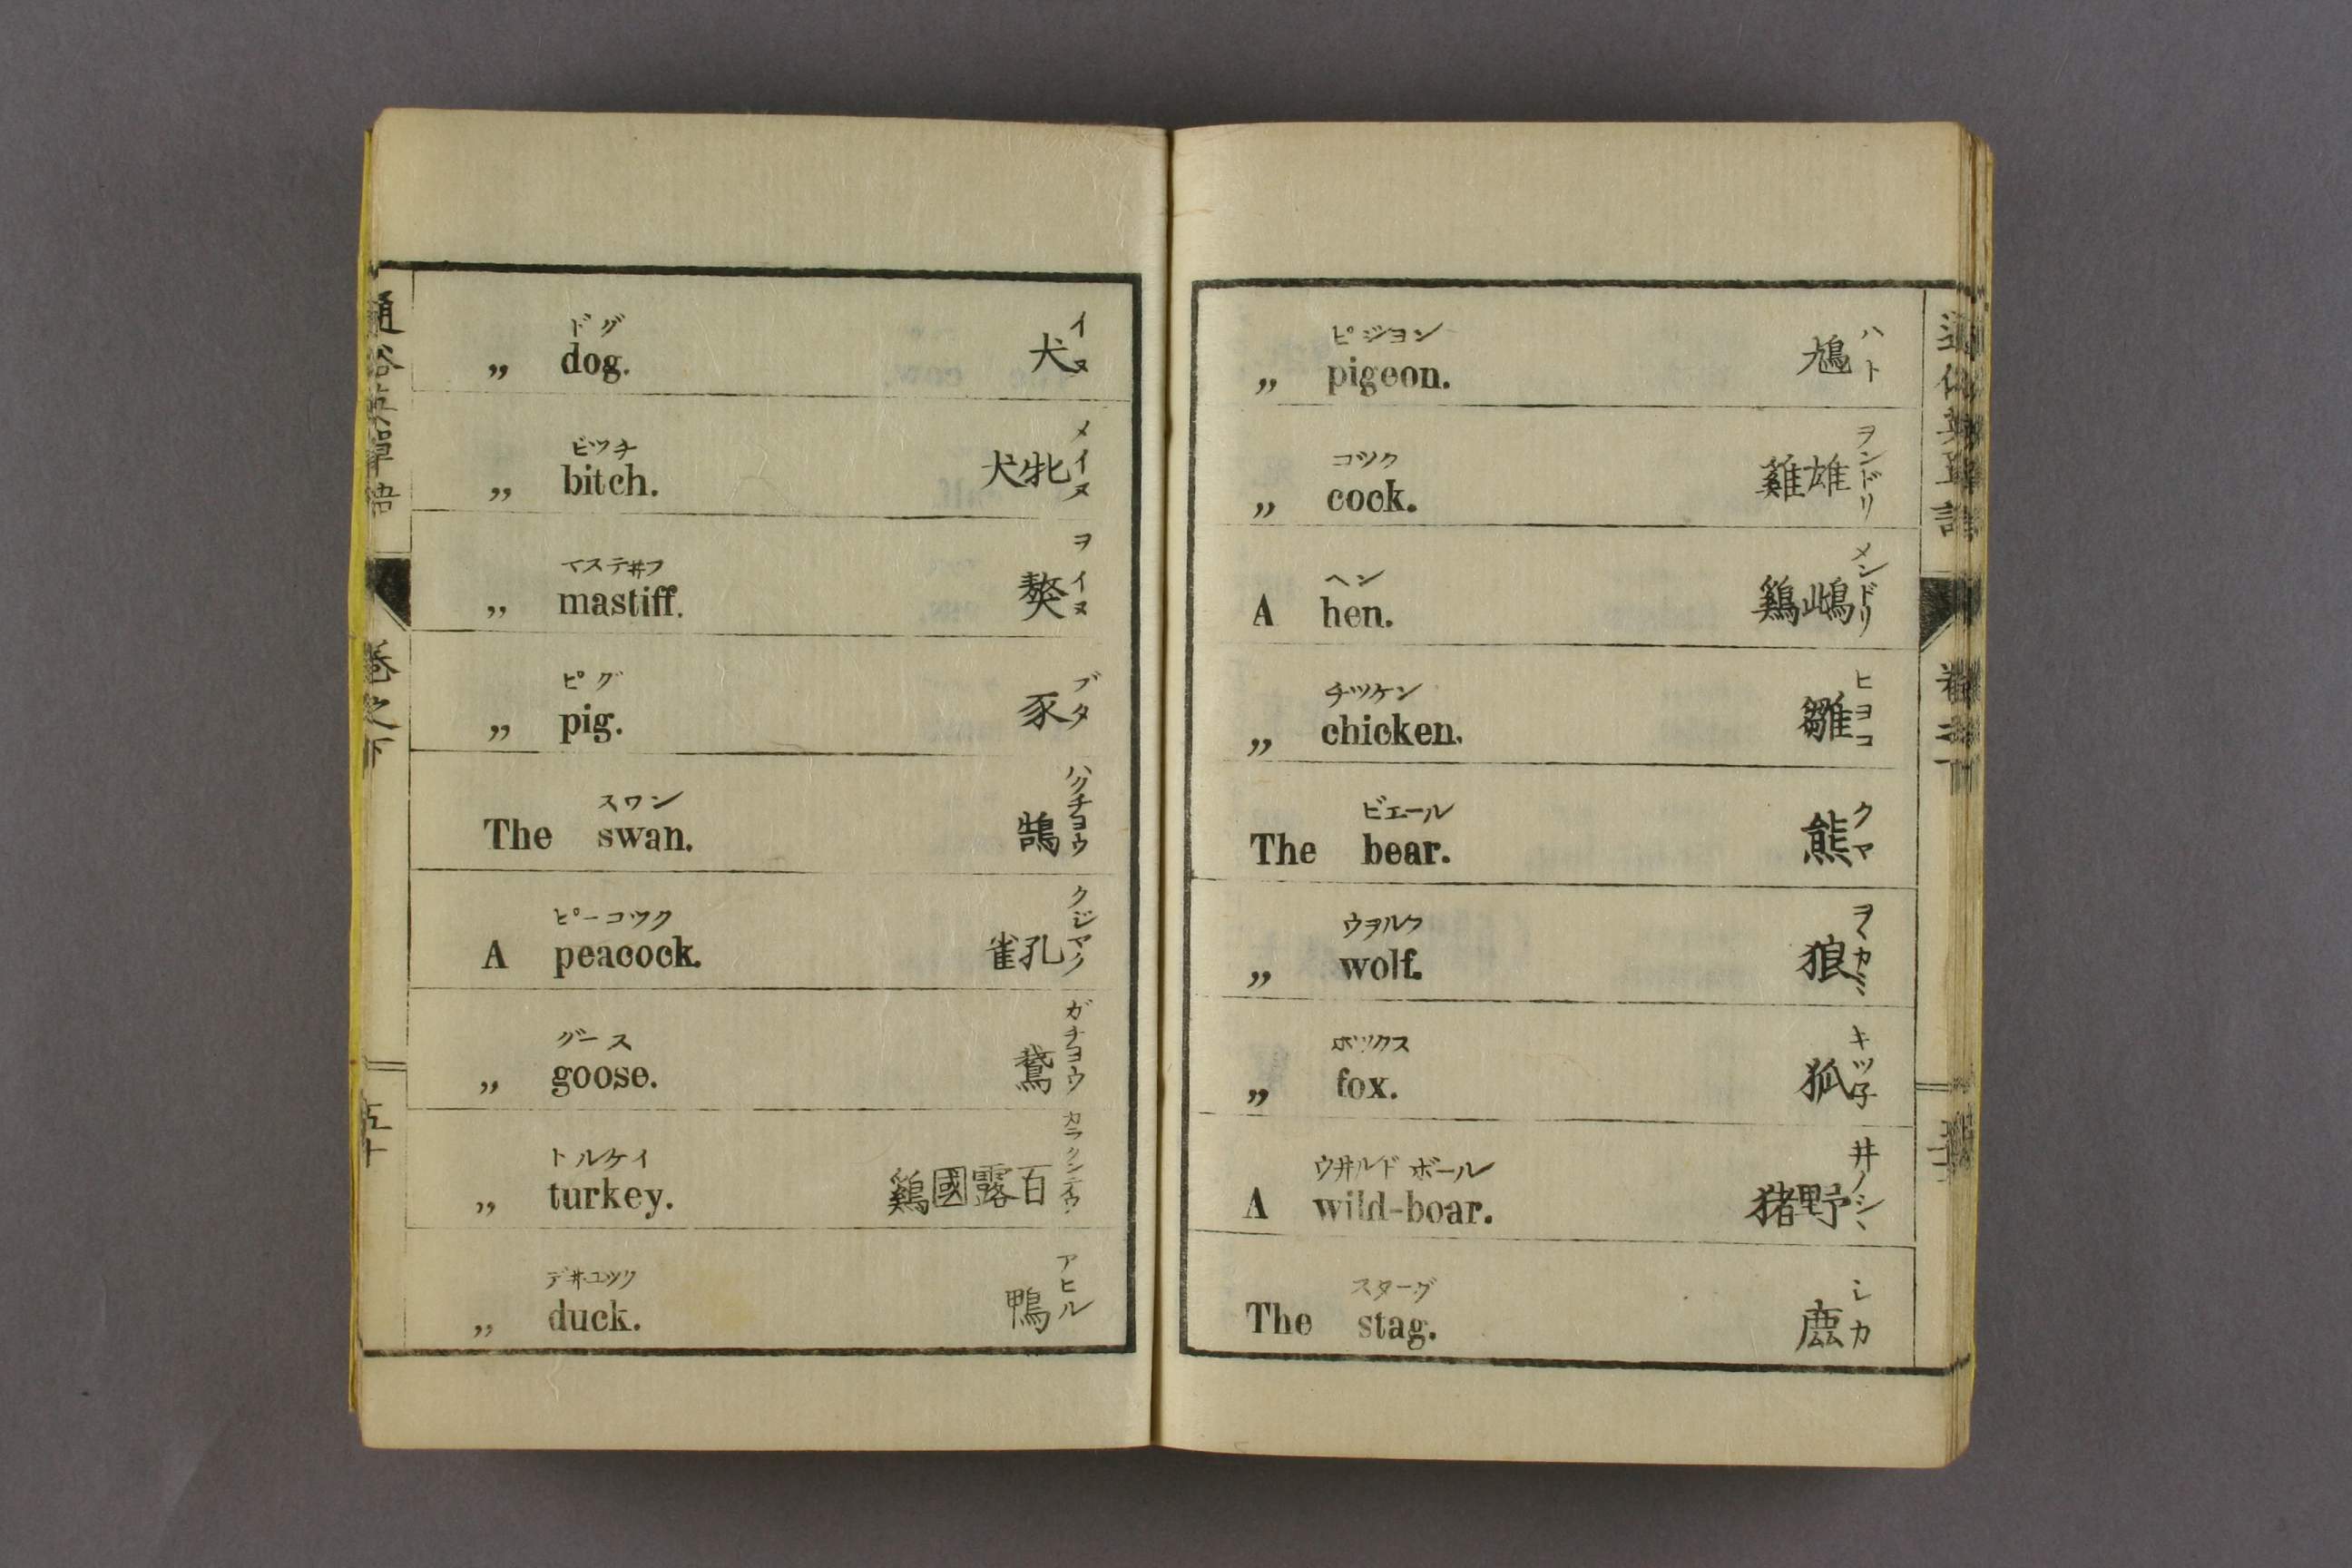 通俗英單語
巻之下
五十
ドグ
„ dog. 犬 イヌ
ビツチ
„ bitch. 牝犬 メイヌ
マステ井フ
„ mastiff. 獒 ヲイヌ
ピグ
„ pig. 豕 ブタ
スワン
The swan. 鵠 ハクチヨウ
ピーコツク
A peacock. 孔雀 クジヤク
グース
„ goose. 鵞 ガチヨウ
トルケイ
„ turkey. 百露國鷄 カラクンテウ
デ井ユツク
„ duck. 鴨 アヒル
ピジヨン
„ pigeon. 鳩 ハト
コツク
„ cock. 雄雞 ヲンドリ
ヘン
A hen. 䳄鷄 メンドリ
チツケン
„ chicken. 雛 ヒヨコ
ビエール
The bear. 熊 クマ
ウヲルフ
„ wolf. 狼 ヲヽカミ
ホツクス
„ fox. 狐 キツ子
ウ井ルド ボール
A wild-boar. 野猪 井ノシヽ
スターグ
The stag. 鹿 シカ
通俗英單語
巻之下